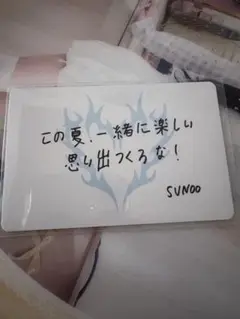 この夏、一緒に楽しい
思い出つくろな!
SUNOO